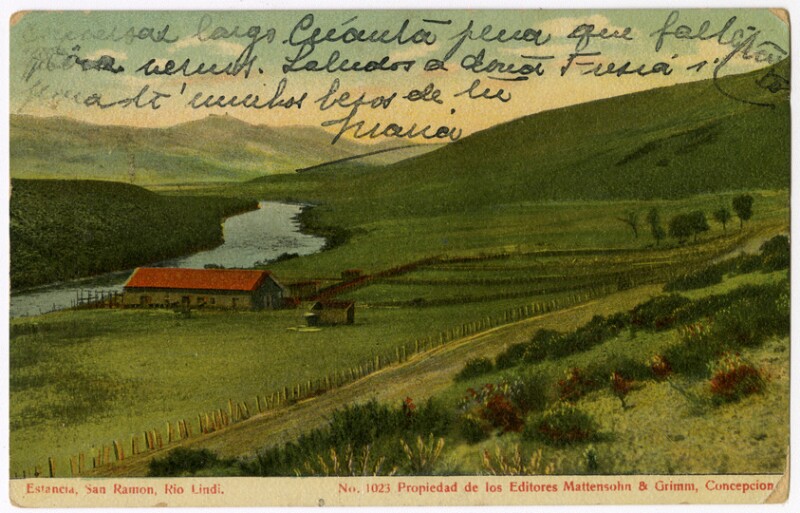 conversar largo Cuánta pena que falta
para vernos. Saludos a doña Fresia i
muchos besos de tu
María
Estancia, San Ramon, Rio Lindi.
No. 1023 Propiedad de los Editores Mattensohn & Grimm, Concepcion